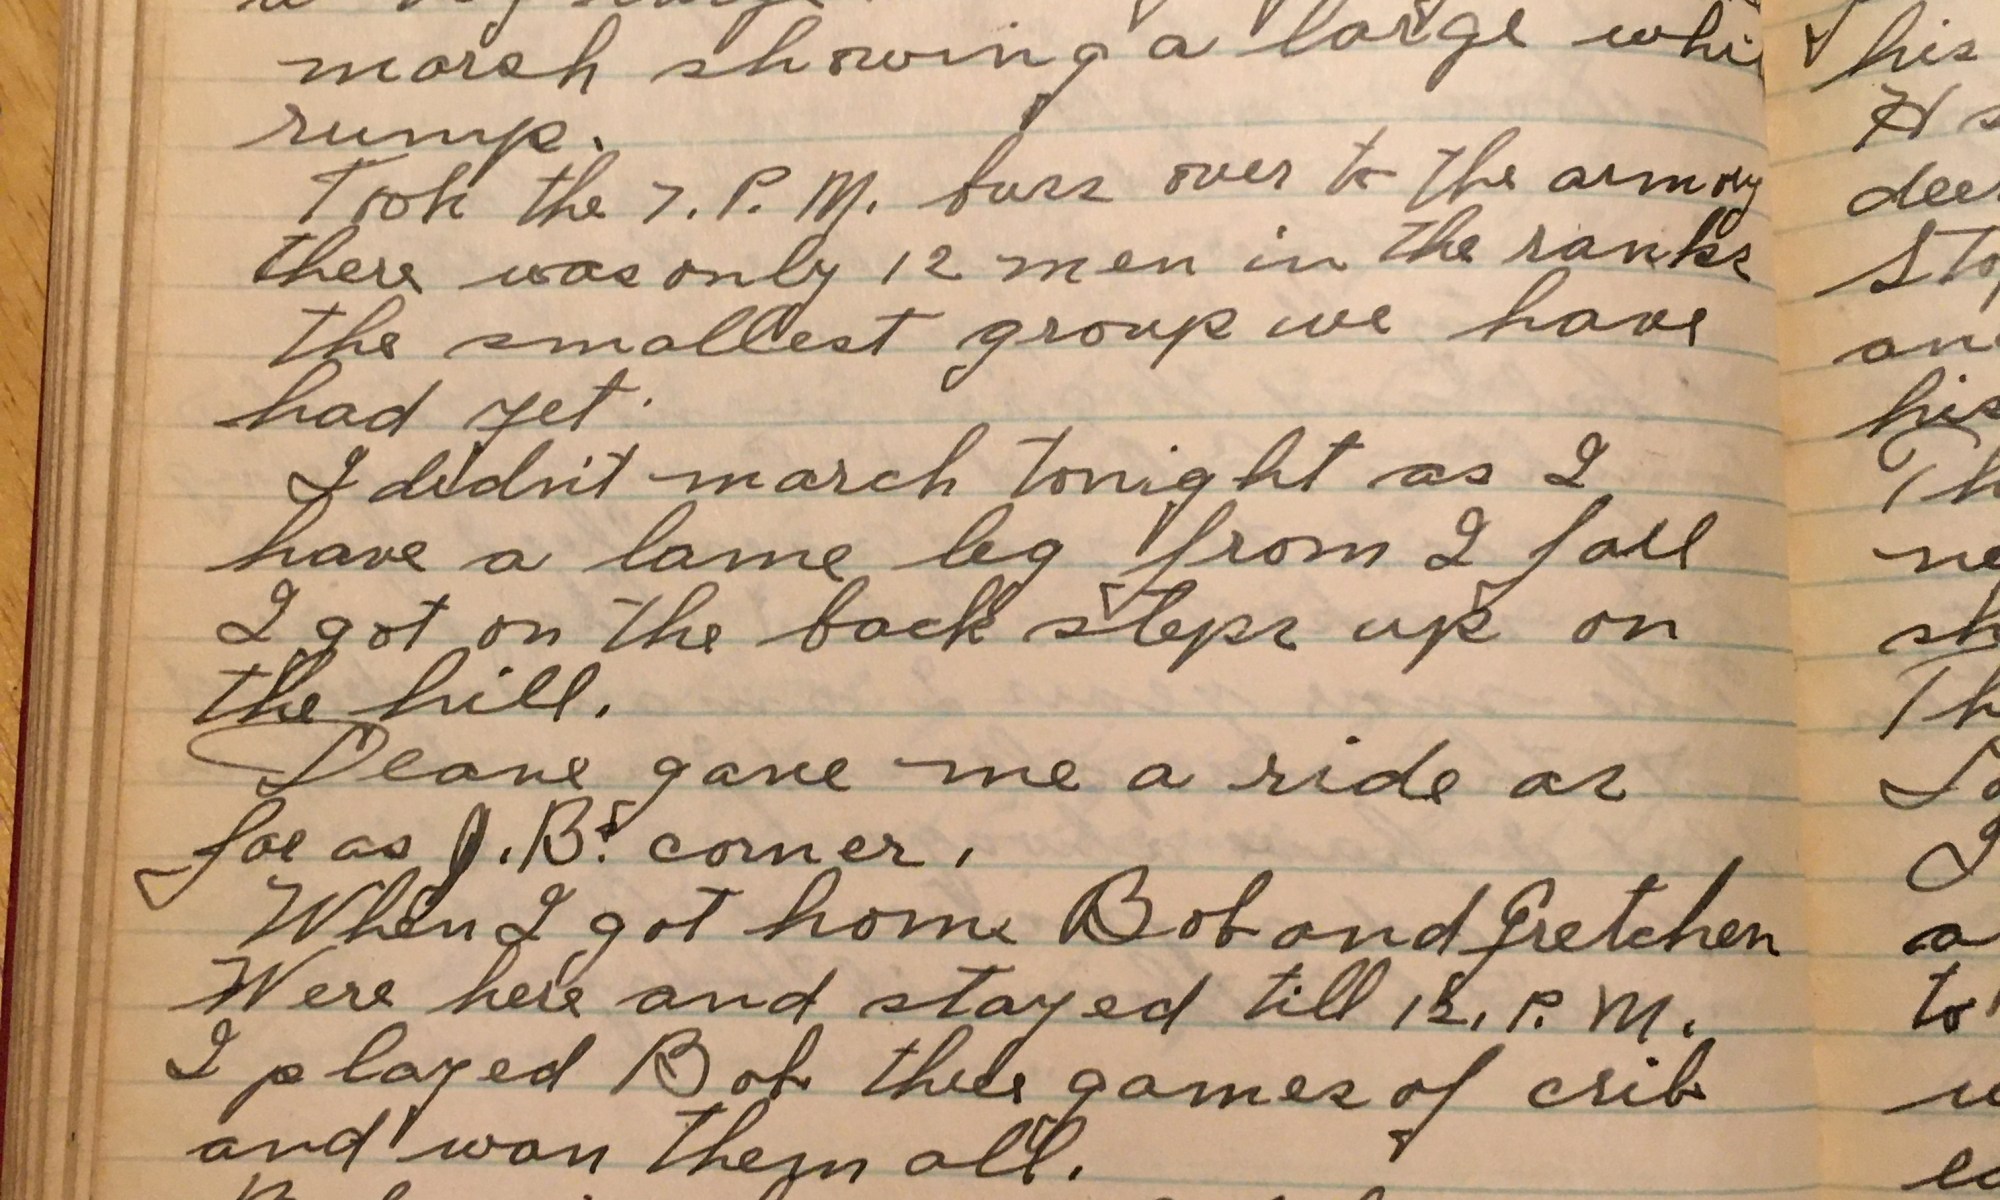 marsh showing a large whi
rump.
Took the 7. P. M. buss over to the armory
there was only 12 men in the ranks
the smallest group we have
had yet.
I didn't march tonight as I
have a lame leg from I fall
I got on the back steps up on
the hill.
Deane gave me a ride as
far as J. B's corner.
When I got home Bob and Gretchen
Were here and stayed till 12. P. M.
I played Bob three games of crib
and won them all.
his
H s
deer
Sto
and
his
Th
ne
sh
Th
I
a
to